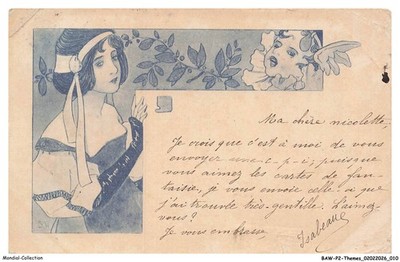 Ma chère nicolette,
Je crois que c'est à moi de vous
envoyer une c-p-i; puisque
vous aimez les cartes de fan-
taisie, je vous envoie celle-à que
j'ai trouvée très-gentille. L'aimez-
vous?
Je vous embrasse
Isabeaue
Mondial-Collection
BAW-P2-Themes_02022026_010